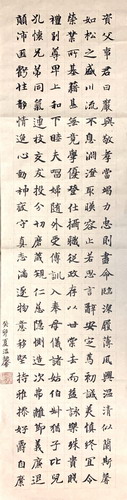 資父事君曰嚴與敬孝當竭力忠則盡命臨深履薄夙興溫凊似蘭斯馨
如松之盛川流不息淵澄取映容止若思言辭安定篤初誠美慎終宜令
榮業所基籍甚無竟學優登仕攝職從政存以甘棠去而益詠樂殊貴賤
禮別尊卑上和下睦夫唱婦隨外受傅訓入奉母儀諸姑伯叔猶子比兒
孔懷兄弟同氣連枝交友投分切磨箴規仁慈隱惻造次弗離節義廉退
顛沛匪虧性靜情逸心動神疲守真志滿逐物意移堅持雅操好爵自縻